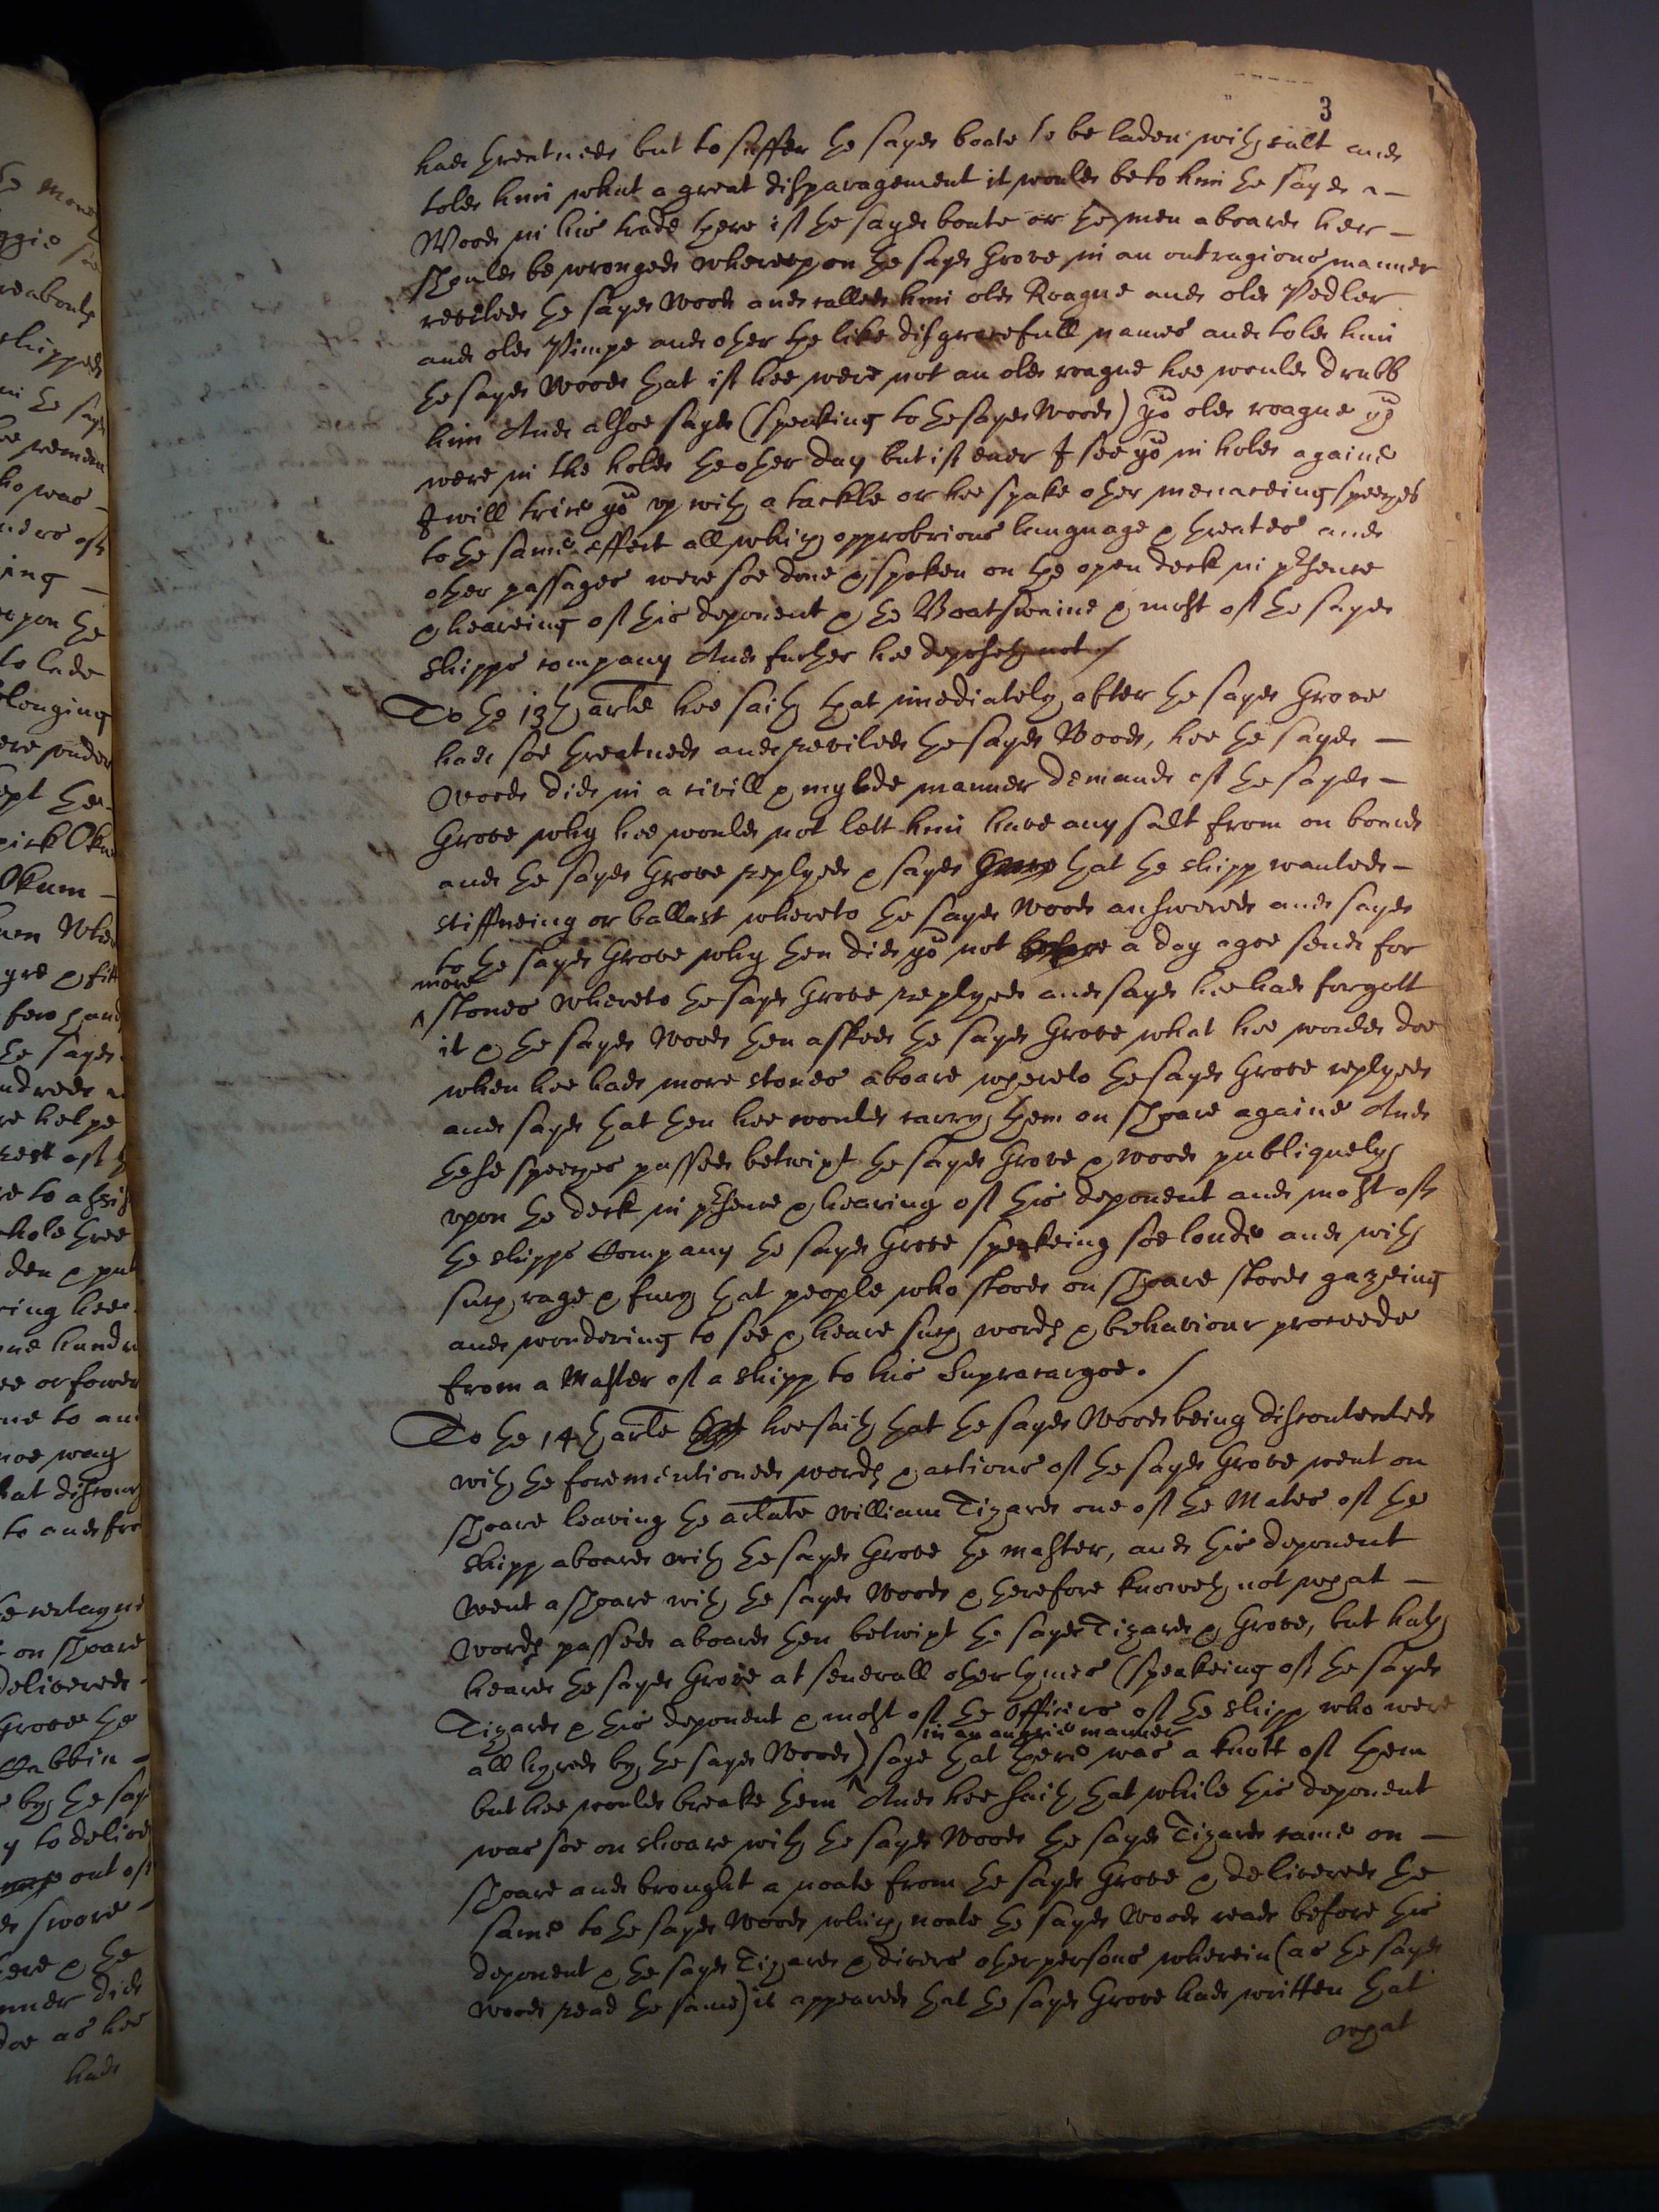 3
had threatned but to suffer the sayd boate to be laden with salt and
told him what a great disparagement it would be to him the sayd
Wood in his trade there if the sayd boate or the men aboard her
should be wronged whereupon the sayd Grove in an outragious manner
reviled the sayd Wood and called him old Roague and old Pedler
and old Pimpe and other the like disgracefull names and told him
the sayd Wood that if hee were not an old roague hee would drubb
him And alsoe sayd (speaking to the sayd Wood) yu old roague yu
were in the hold the other day but if ever I see yu in hold againe
I will trice yu up with a tackle or hee spake other menaceing speeches
to the same effect all which opprobrious language & threates and
other passages were soe done & spoken on the open deck in pnce
& heareing of this deponent & the Boatswaine & most of the sayd
shipps company And further hee deposeth not /
To the 13th arle hee saith that imediately after the sayd Grove
had soe threatned and reviled the sayd Wood, hee the sayd
Wood did in a civill & mylde manner demand of the sayd
Grove why hee would not lett him have any salt from on board
and the sayd Grove replyed & sayd that the shipp wanted
stiffneing or ballast whereto the sayd Wood answered and sayd
to the sayd Grove why then did yu not before a day agoe send for
more
^ stones whereto the sayd Grove replyed and sayd hee had forgott
it & the sayd Wood then asked the sayd Grove what hee would doe
when hee had more stones aboard whereto the sayd Grove replyed
and sayd that then hee would carry them on shoare againe And
these speeches passed betwixt the sayd Grove & Wood publiquely
upon the deck in pnce & hearing of this deponent and most of
the shipps Company the sayd Grove speakeing soe loude and with
such rage & fury that people who stood on shoare stood gazeing
and wondering to see & heare such words & behaviour proceede
from a Master of a shipp to his Supracargoe. /
To the 14th arle hee saith that the sayd Wood being discontented
with the forementioned words & actions of the sayd Grove went on
shoare leaving the arlate William Tizard one of the Mates of the
shipp aboard with the sayd Grove the master, and this deponent
went a shoare with the sayd Wood & therefore knoweth not what
words passed aboard then betwixt the sayd Tizard & Grove, but hath
heard the sayd Grove at severall other tymes (speakeing of the sayd
Tizard & this deponent & most of the Officers of the shipp who were
in an angrie manner
all hyred by the sayd Wood) ^ saye that there was a knott of them
but hee would breake them And hee saith that while this deponent
was soe on shoare with the sayd Wood the sayd Tizard came on
shoare and brought a noate from the sayd Grove & delivered the
same to the sayd Wood which noate the sayd Wood read before this
deponent & the sayd Tizard & divers other persons wherein (as the sayd
Wood read the same) it appeared that the sayd Grove had written that
what